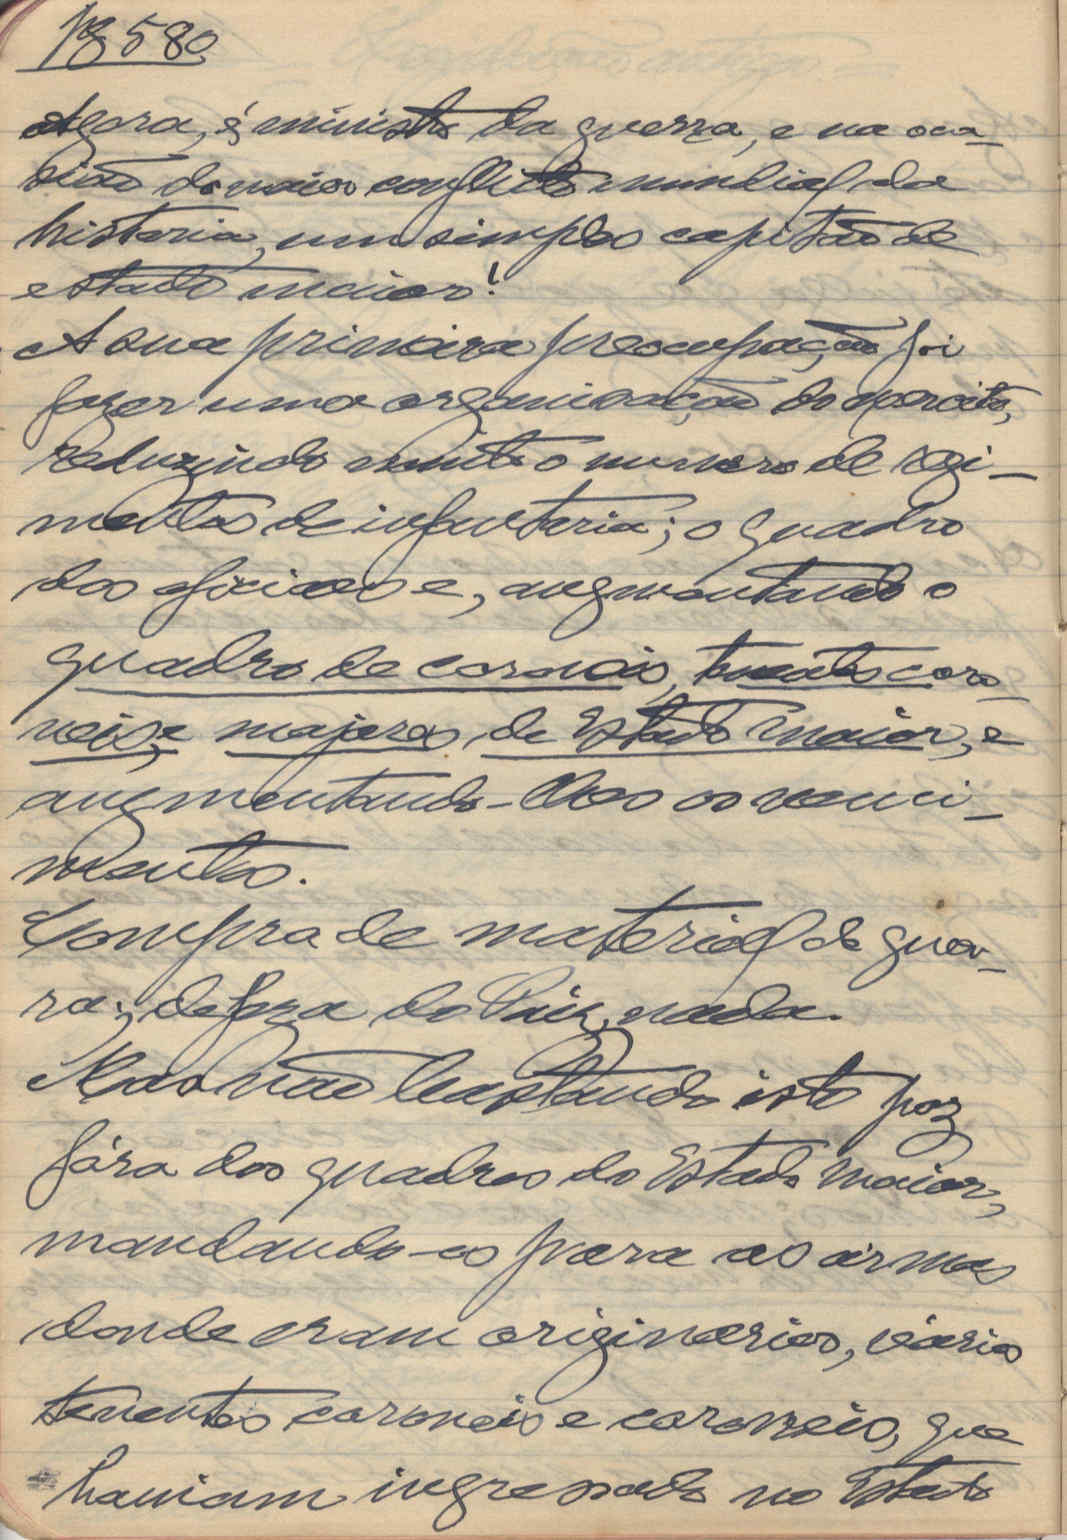 Pg 580
Agora, é ministro da guerra, e na oca-
sião do maior conflito mundial da
historia, um simples capitão de
estado maior!
A sua primeira preocupação foi
fazer uma organisação do exercito,
reduzindo muito o numero de regi-
mentos de infanteria; o quadro
dos oficiaes e, augmentando o
quadro de coroneis, tenentes coro-
neis, e majores, de Estado Maior, e
augmentando-lhes os venci-
mentos.
Compra de material de guer-
ra; defeza do Paiz, nada.
Mas não bastando isto poz
fóra dos quadros do Estado Maior,
mandando-os para as armas
donde eram originarios, vários
tenentes coroneis e coroneis, que
haviam ingressado no Estado